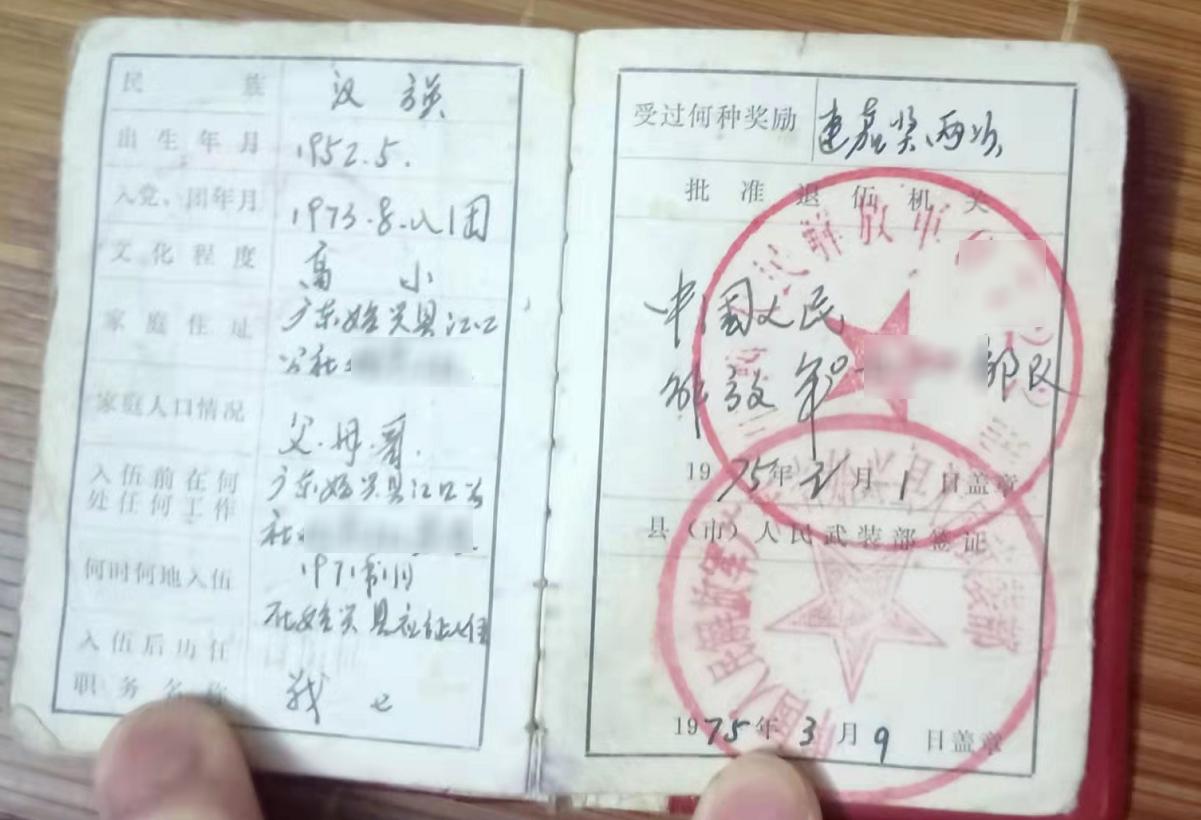 民族 汉族
出生年月 1952.5.
入党、团年月 1973.8.入团
文化程度 高小
家庭住址 广东始兴县江口
公社
家庭人口情况 父.母.哥.
入伍前在何 广东始兴县江口公
处任何工作 社
何时何地入伍 1971年1月
在始兴县应征入伍
入伍后历任
职务名称 战士
受过何种奖励 连嘉奖两次
批准退伍机关
中国人民
解放军 部队
1975年 月1日盖章
县（市）人民武装部签证
1975年3月9日盖章
民解放军
国人民解放军广 兴县人民武装部